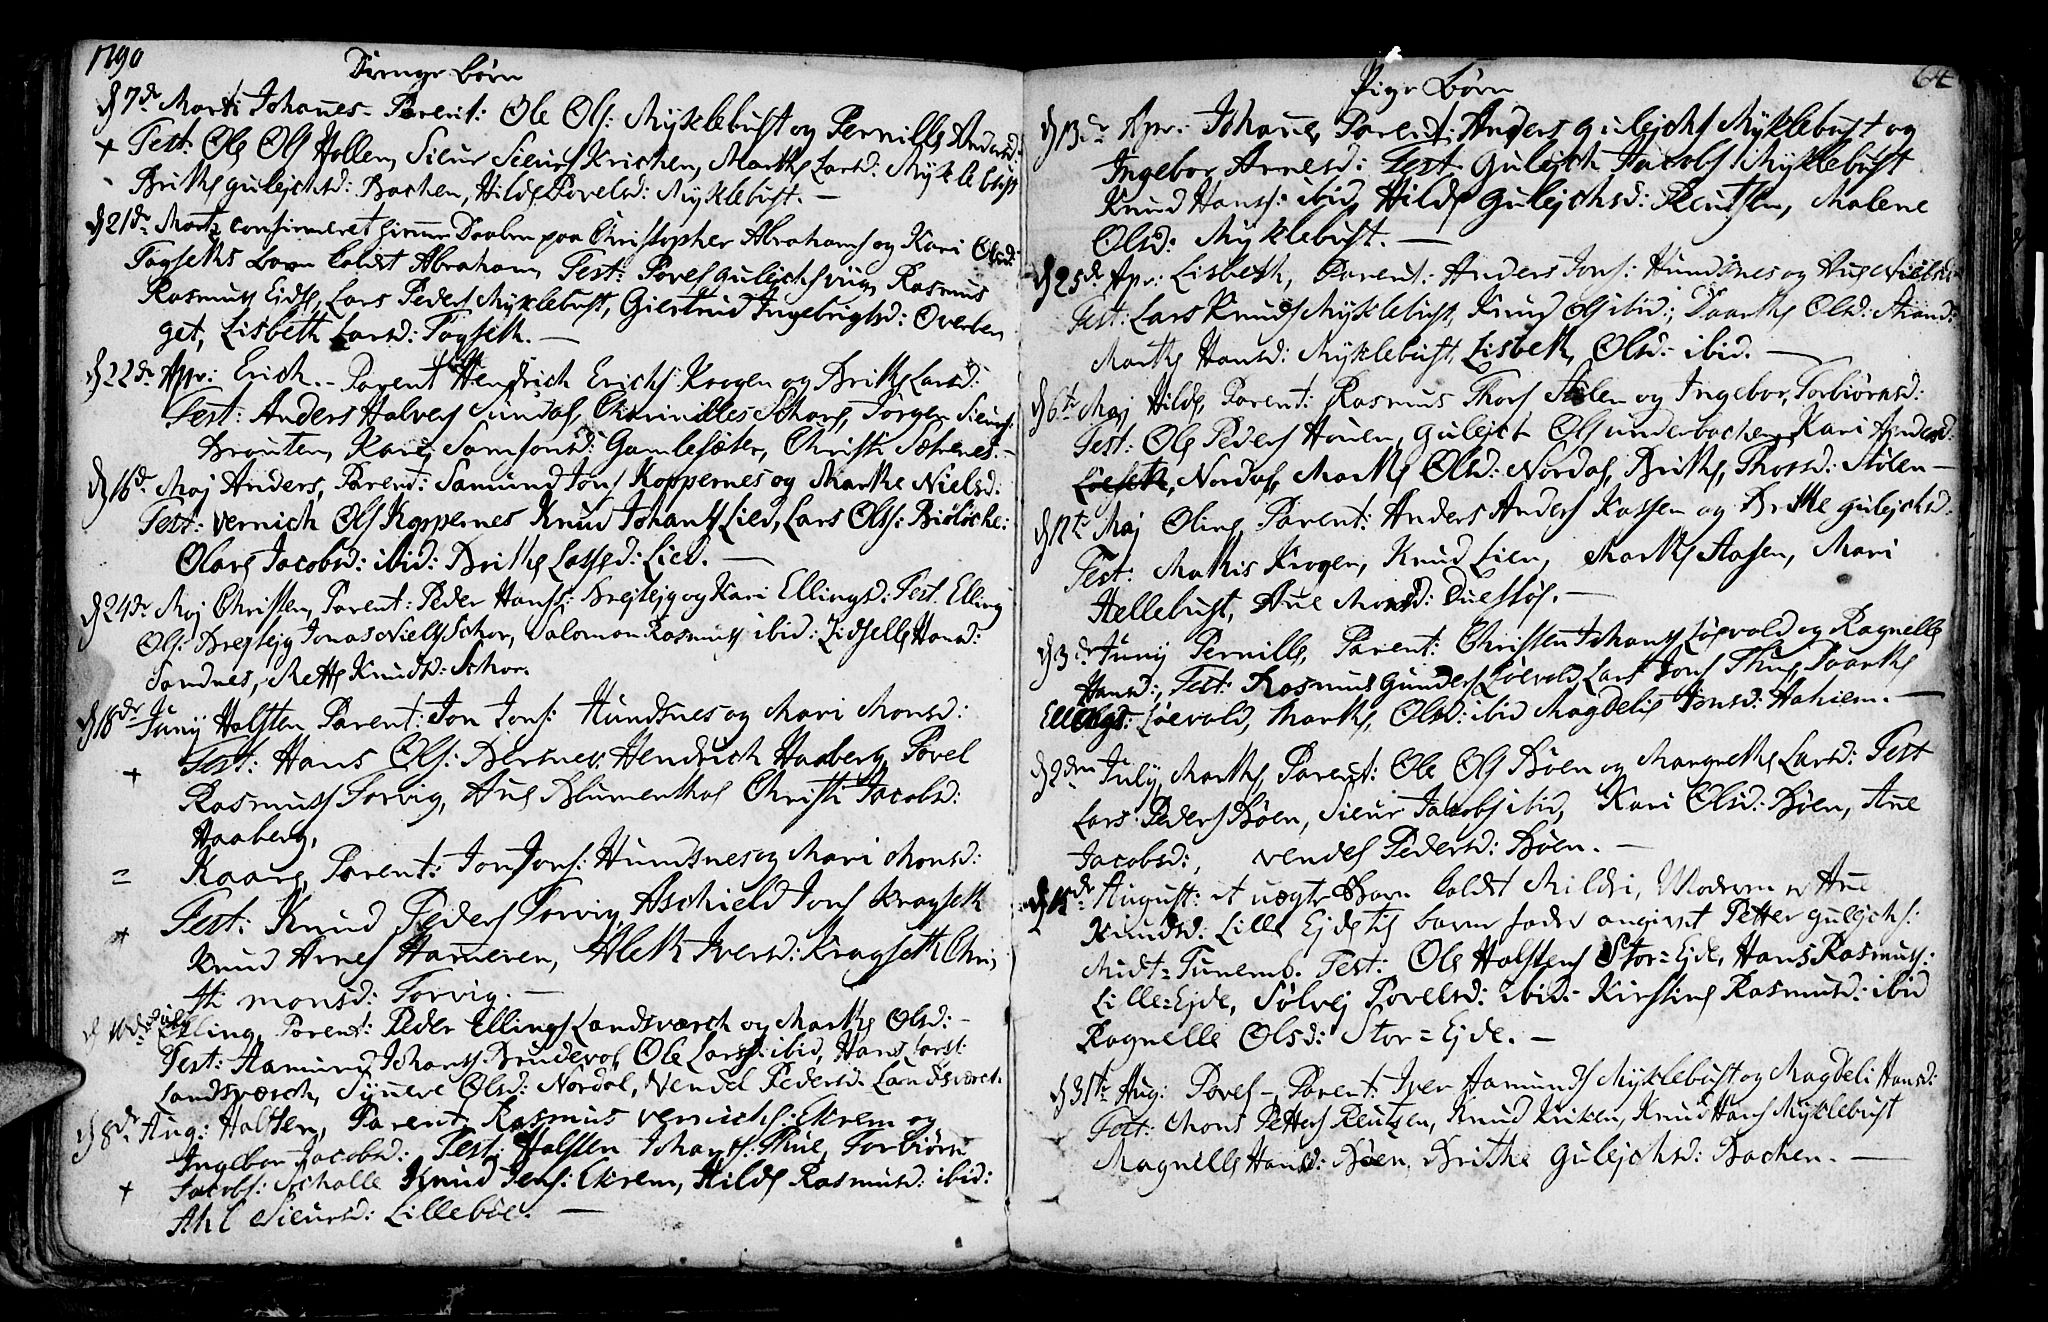 1790
Drenge Børn
d 7de Marti Johanes - Parent: Ole Ols: Myklebust og Pernille Andersd:
+ Test: Ole Ols Hollen, Siver Sivers Kirchen, Marthe Larsd: Myklebust
Brithe Gulejchsd: Bachen, Hilde Povelsd: Myklebust. —
d 21de Marti confirmeret Daaben paa Christopher Abrahams og Kari Olsd:
Togseths Barn kaldt Abraham, Test: Povel Gulejchs viig, Rasmus
Rasmuss Eidse, Lars Peders Myklebust, Giertrud Ingebrigtsd: Overber
get, Lisbeth Larsd: Togseth. —
d 22de Apr: Erich. - Parent Hendrich Erichs: Krogen og Brithe Larsd:
Test: Anders Halvers Sundal, Jørgen Siurs:
Brouten, Kari Samsonsd: Gamlesæter, Christi
d 16de Maj Anders, Parent: Samund Jons Koppernes og Marthe Nielsd:
Test: Vernich Ols Koppernes Knud Johans Lied, Lars Ols:
Jacobsd: ibid: Brithe Lassed: Lied. —
d 24de Maj Christen, Parent: Peder Hanss: Brejtejg og Kari Ellingsd: Test. Elling
Ols: Brejtejg Jonas Niels Schor, Salomon Rasmuss ibid: Zidselle Hansd:
Sandnes, Mette Knudsd: Schor.
d 18de Junij Halsten, Parent: Jon Jons: Hundsnes og Mari Monsd:
Test: Hans Ols: Bersnes, Hendrich Haaberg, Povel
+ Rasmuss Torvig, Ane Blumenthal Christi Jacobsd:
Haaberg,
= Kaare, Parent: Jon Jons: Hundsnes og Mari Monsd:
+ Test: Knud Peders Torvig Aschield Jons Kragseth
Knud Arnes Hameren, Aleth Iversd: Kragseth Chri,
sti Monsd: Torvig. —
d 10de July Elling, Parent: Peder Ellings Landsværch og Marthe Olsd: -
Test: Hamund Johans Brudevol, Ole Larss: ibid, Hans Larss:
Landsværch, Synneve Olsd: Nordal, Vendel Pedersd: Landsværch.
d 8de Aug: Halsten, Parent, Rasmus Vernichs: Ekrem og
Ingebor Jacobsd: Test: Halsten Johans: Thue, Torbiørn
+ Jacobs: Scholle Knud Jens: Ekrem, Hilde Rasmusd: ibid:
Ahl Siursd: Lillebøe. —
64
Pige Børn
d 13de Apr: Johane, Parent: Anders Gulejchs Myklebust og
Ingebor Arnesd: Test Gulejch Jacobs Myklebust
Knud Hanss: ibid, Hilde Gulejchsd: Reutsen, Malene
Olsd: Myklebust. —
d 25de Apr: Lisbeth, Parent: Anders Jons: Hundsnes og Ane Nielsd:
Test: Lars Knuds Myklebust, Knud Ols ibid:, Daarthe Olsd: Strand:
Marthe Hansd: Myklebust, Lisbeth, Olsd: ibid. —
d 6te Maj Hilde, Parent: Rasmus Thors Stølen og Ingebor, Torbiørnsd:
Test: Ole Peders Houen, Gulejch Ols underbachen, Kari Andersd:
Nordal, Marthe Olsd: Nordal, Brithe, Thorsd: Stølen —
d 12te Maj Oline, Parent: Anders Anders Kassen og Brithe Gulejchsd.
Test: Mathis Krogen, Knud Lien, Marthe Aasen, Mari
Hellebust, Ane Monsd: —
d 3de Junij Pernille, Parent: Christen Johans Løevold og Ragnelle
Hansd:, Test: Rasmus Gunders Løevold, Lars Jons Thue, Daarthe
Ellingsd: Løevold, Marthe, Olsd: ibid Magdeli Jonsd: Hahiem. —
d 2den July, Marthe, Parent: Ole Ols Bøen og Margrethe Larsd: Test
Lars Peders Bøen, Siur Jacobs ibid, Kari Olsd: Bøen, Ane
Jacobsd:, Vendel Pedersd: Bøen. —
August: et uægte Barn kaldt Mildri, Moderen er Ane
Knudsd: Lille Ejde til barne fader angivet Petter Gulejchs:
Midt=Tunemb. Test: Ole Halstens Stor=Ejde, Hans Rasmuss:
Lille=Ejde, Sølvej Povelsd: ibid: Kirstine Rasmusd: ibid
Ragnelle Olsd: Stor=Ejde. —
d 31te Aug: Povel -, Parent: Iver Hamunds Myklebust og Magdeli Hansd:
Test: Mons Petters Reutzen, Knud Kirken, Knud Hans Myklebust
Magnelle Hansd: Bøen, Brithe Gulejchsd: Bachen. —